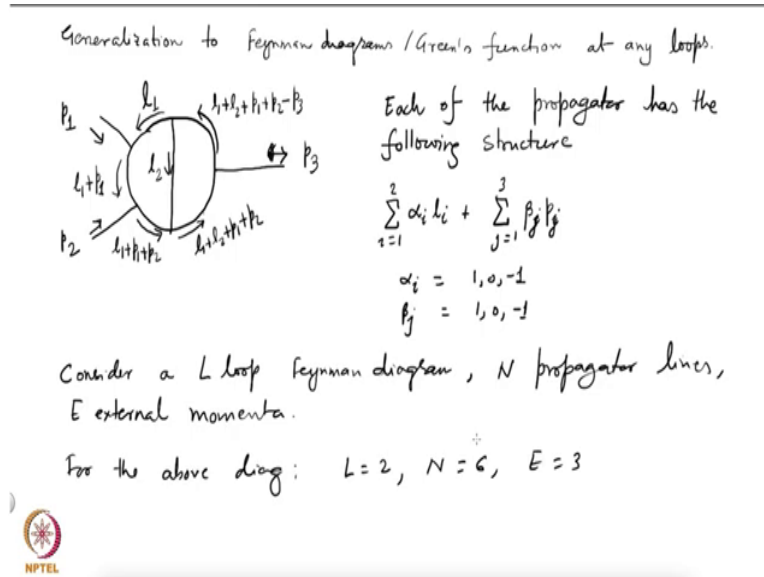 Generalization to Feynman diagrams / Green's function at any loops.
l₁
l₁+l₂+p₁+p₂-p₃
p₁
l₁+p₁
l₂
p₃
p₂
l₁+p₁+p₂
l₁+l₂+p₁+p₂
Each of the propagator has the
following structure
∑_{i=1}^{2} αᵢ lᵢ + ∑_{j=1}^{3} βⱼ pⱼ
αᵢ = 1, 0, -1
βⱼ = 1, 0, -1
Consider a L loop Feynman diagram, N propagator lines,
E external momenta.
For the above diag: L = 2, N = 6, E = 3
NPTEL